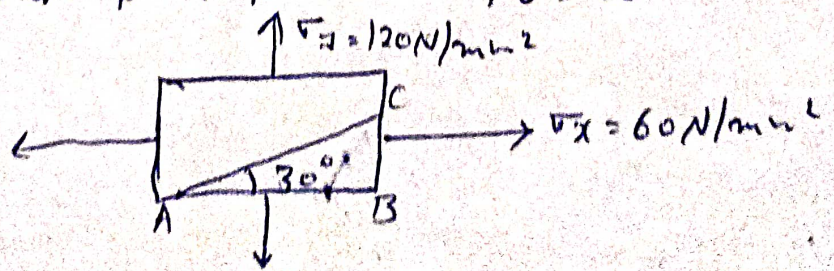 σy = 120 N/mm²
C
σx = 60 N/mm²
30°
A
B